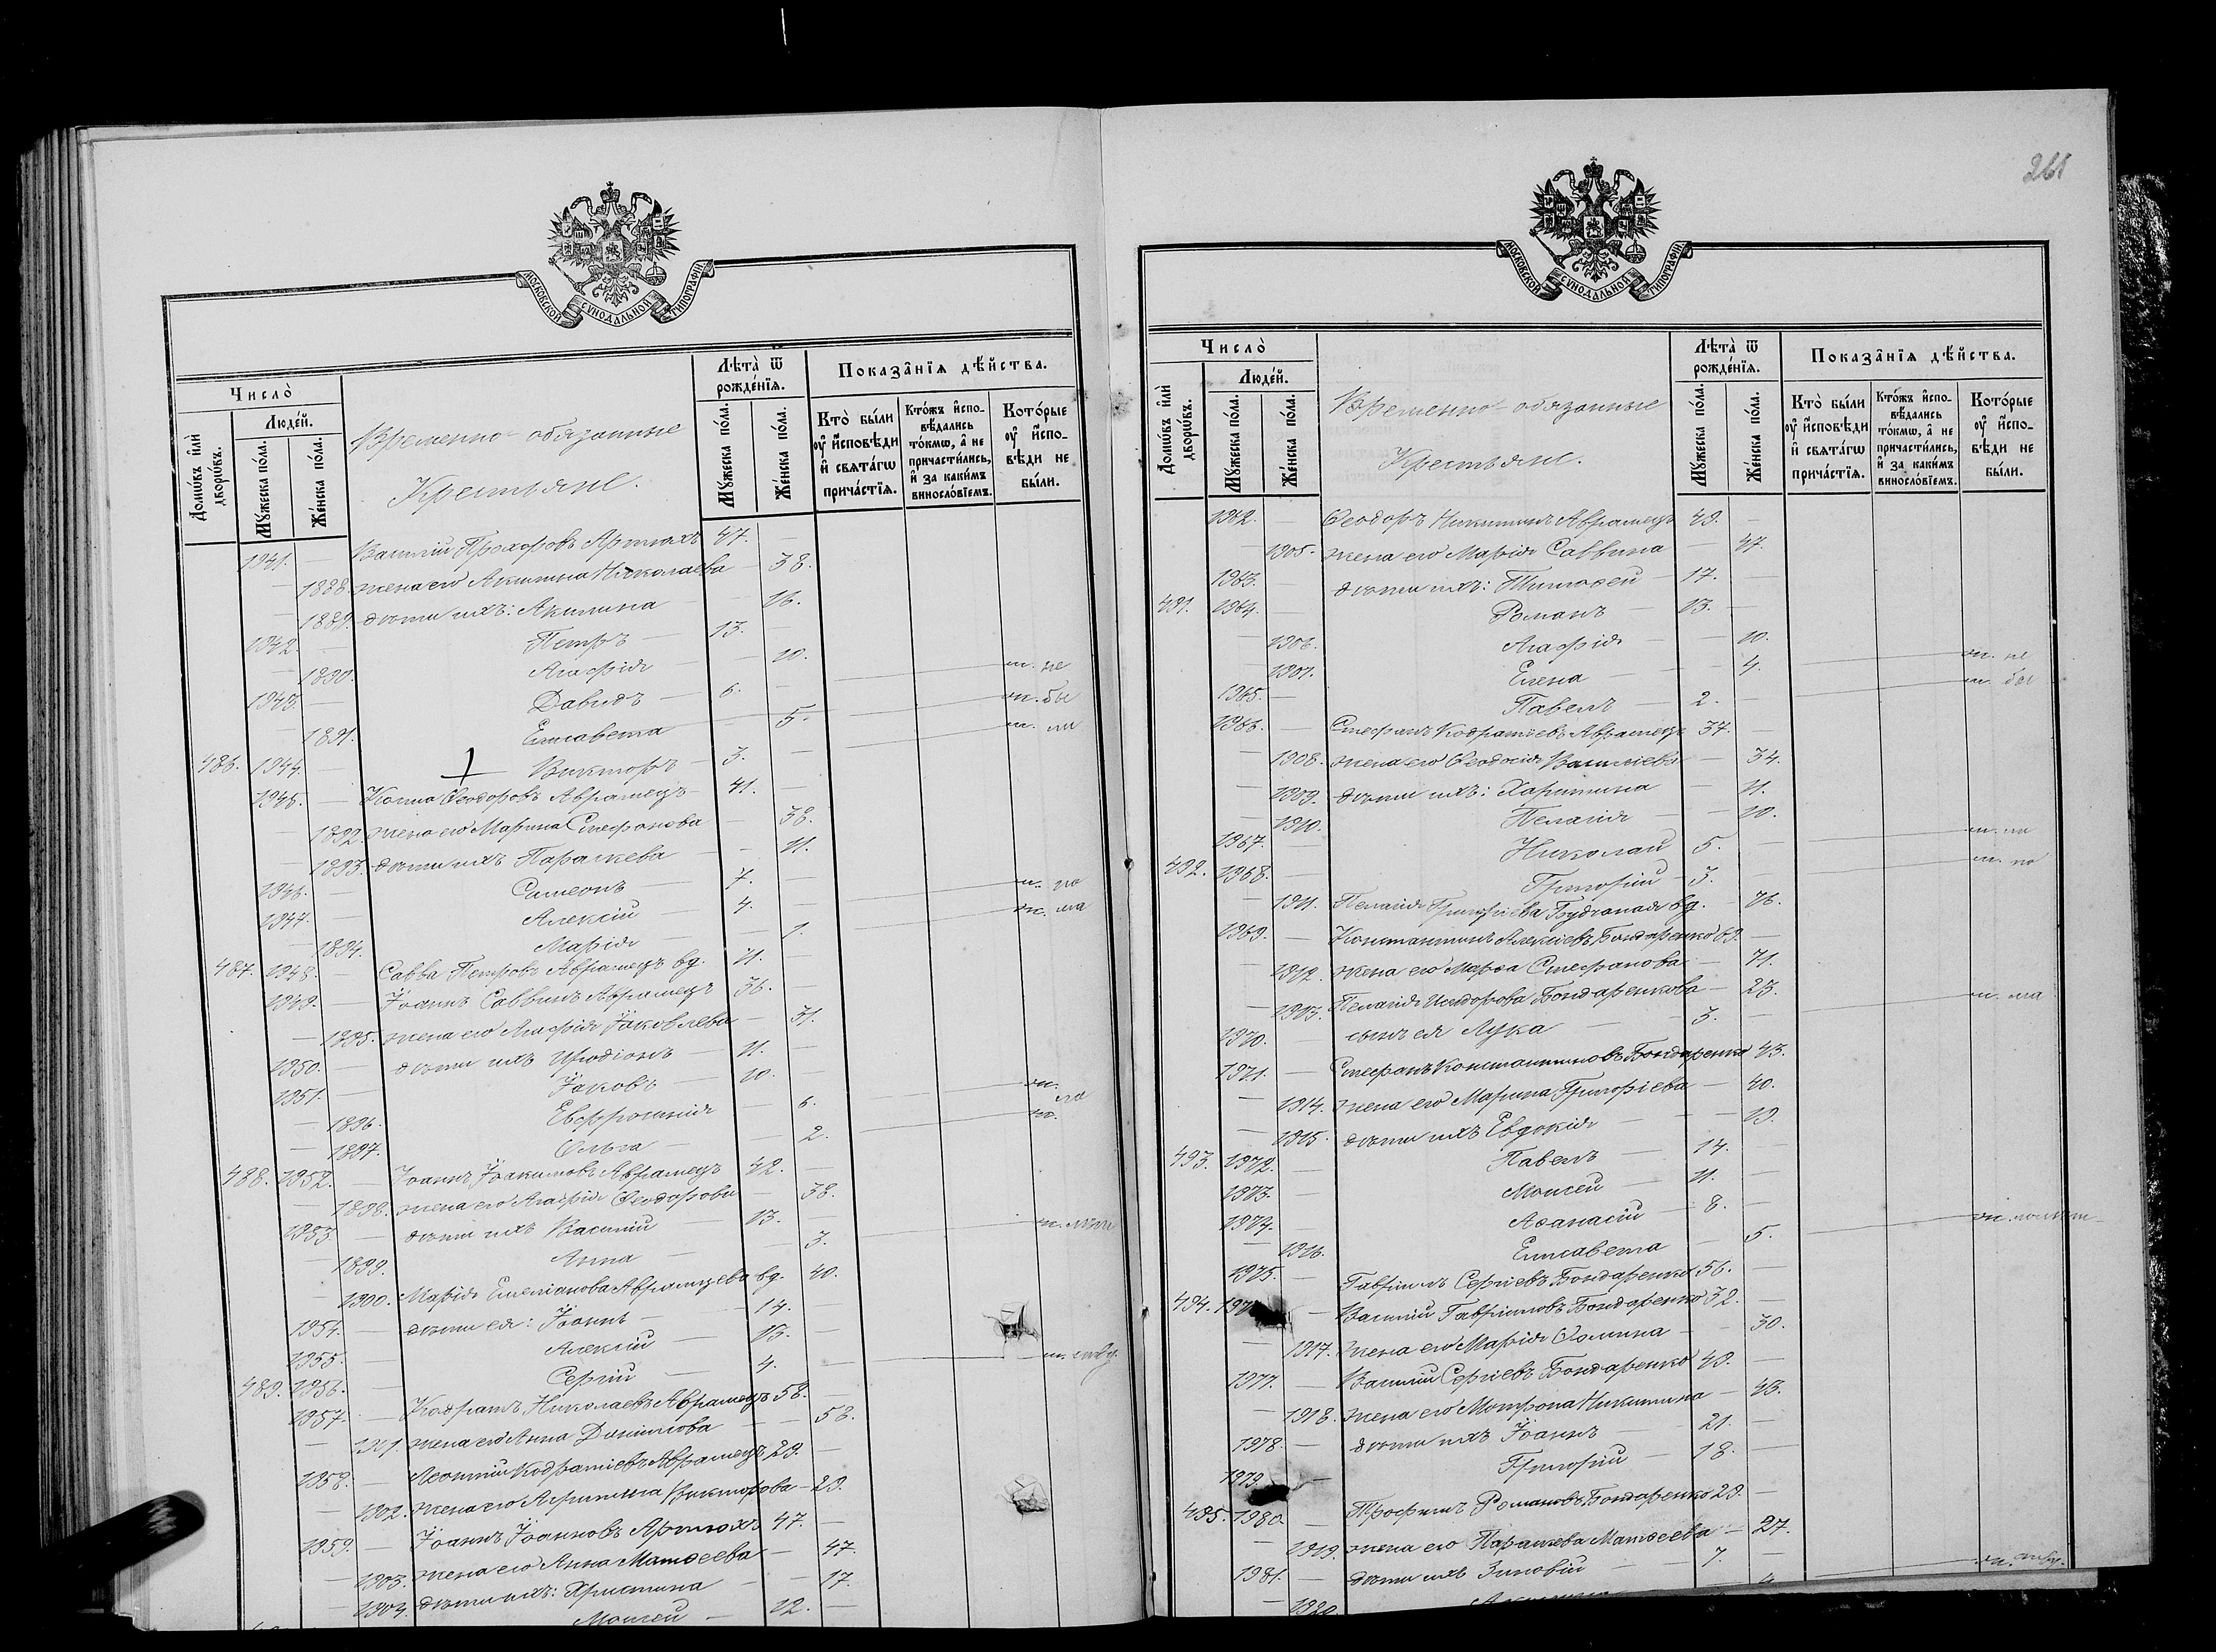 261
МОСКОВСКОЙ СѴНОДАЛЬНОЙ ТИПОГРАФІИ
Число̀
Людéй.
Домѡ́въ и҆лѝ дворѡ́въ.
Мꙋ́жеска по́ла.
Же́нска по́ла.
Временно-обязанные
Крестьяне.
Лѣта̀ ѿ рожде́нїѧ.
Мꙋ́жеска по́ла.
Же́нска по́ла.
Показа̑нїѧ дѣ́йства.
Кто̀ бы́ли оу҆ и҆́сповѣди и҆ свѧта́гѡ прича́стїѧ.
Кто́жъ и҆спо- вѣ́дались то́кмѡ, а҆ не причасти́лись, и҆ за каки́мъ винослóвїемъ.
Кото́рые оу҆ и҆́спо- вѣди не бы́ли.
1941. — Василій Прохоровъ Артюхъ 47. —
— 1888. жена его Акилина Николаева — 38.
— 1889. дѣти ихъ: Акилина — — 16.
1942. — Петръ — 13. —
— 1890. Агафія — — 10.
1943. — Давидъ — 6. — м. не
— 1891. Елисавета — 5. м. бы
486. 1944. — Викторъ — 3. — м. ли
1945. — Косма Ѳеодоровъ Аврамецъ 41. —
— 1892. жена его Марина Стефанова — 38.
— 1893. дѣти ихъ Параскева — — 11.
1946. — Симеонъ — 7. —
1947. — Алексій — 4. — м. по
— 1894. Марія — — 1. м. ма
487. 1948. — Савва Петровъ Аврамецъ вд. 71. —
1949. — Іоаннъ Саввинъ Аврамецъ 36. —
— 1895. жена его Агафія Іаковлева — 31.
1950. — дѣти ихъ Иродіонъ — 11. —
1951. — Іаковъ — 10. —
— 1896. Евфросинія — 6. м. ло
— 1897. Ольга — — 2. м.
488. 1952. — Іоаннъ Іоакимовъ Аврамецъ 42. —
— 1898. жена его Агафія Ѳеодорова — 38.
1953. — дѣти ихъ Василій — 13. —
— 1899. Анна — — 3. м. лѣт
— 1900. Марія Емеліанова Аврамцева вд. 40.
1954. — дѣти ея: Іоаннъ — 14. —
1955. — Алексій — 13. —
489. 1956. — Сергій — 4. — м.
1957. — Кодратъ Николаевъ Аврамецъ 58. —
— 1901. жена его Анна Діонисова — 58.
1958. — Леонтій Кодратіевъ Аврамецъ 29. —
— 1902. жена его Агрипина Викторова — 29.
1959. — Іоаннъ Іоанновъ Артюхъ 47. —
— 1903. жена его Анна Матѳеева — 47.
— 1904. дѣти ихъ: Христина — — 17.
Моисей — 12. —
МОСКОВСКОЙ СѴНОДАЛЬНОЙ ТИПОГРАФІИ
Число̀
Людéй.
Домѡ́въ и҆лѝ дворѡ́въ.
Мꙋ́жеска по́ла.
Же́нска по́ла.
Временно-обязанные
Крестьяне.
Лѣта̀ ѿ рожде́нїѧ.
Мꙋ́жеска по́ла.
Же́нска по́ла.
Показа̑нїѧ дѣ́йства.
Кто̀ бы́ли оу҆ и҆́сповѣди и҆ свѧта́гѡ прича́стїѧ.
Кто́жъ и҆спо- вѣ́дались то́кмѡ, а҆ не причасти́лись, и҆ за каки́мъ винослóвїемъ.
Кото́рые оу҆ и҆́спо- вѣди не бы́ли.
1962. — Ѳеодоръ Никитинъ Аврамецъ 49. —
— 1905. жена его Марія Саввина — 47.
1963. — дѣти ихъ: Тимоѳей — 17. —
491. 1964. — Романъ — 13. —
1906. Агафія — — 10.
1907. Елена — — 4. м. не
1965. — Павелъ — 2. — м. бы
1966. — Стефанъ Кодратіевъ Аврамецъ 37. —
— 1908. жена его Ѳеодосія Василіева — 34.
— 1909. дѣти ихъ: Харитина — 11.
— 1910. Пелагія — — 10.
1967. — Николай — 5. — м. ли
492. 1968. — Григорій — 3. — м. по
— 1911. Пелагія Григоріева вд. — 76.
1969. — Константинъ Алексіевъ Бондаренко 69. —
— 1912. жена его Марѳа Стефанова — 71.
— 1913. Пелагія Исидорова Бондаренкова — 23.
1970. — сынъ ея Лука — 3. — м. ма
1971. — Стефанъ Константиновъ Бондаренко 43.
— 1914. жена его Марина Григоріева — 40.
— 1915. дѣти ихъ Евдокія — — 19.
493. 1972. — Павелъ — 14. —
1973. — Моисей — 11. —
1974. — Аѳанасій — 8. —
— 1916. Елисавета — 5. м.
1975. — Гавріилъ Сергіевъ Бондаренко 56. —
494. 197 — Василій Гавріиловъ Бондаренко 32. —
— 1917. жена его Марія Ѳомина — 30.
1977. — Василій Сергіевъ Бондаренко 49. —
— 1918. жена его Матрона Никитина — 43.
1978. — дѣти ихъ Іоаннъ — 21. —
1979. — Григорій — 18. —
495. 1980. — Трофимъ Романовъ Бондаренко 29. —
— 1919. жена его Параскева Матѳеева — 27.
1981. — дѣти ихъ Зиновій — 7. — м.
— 1920.